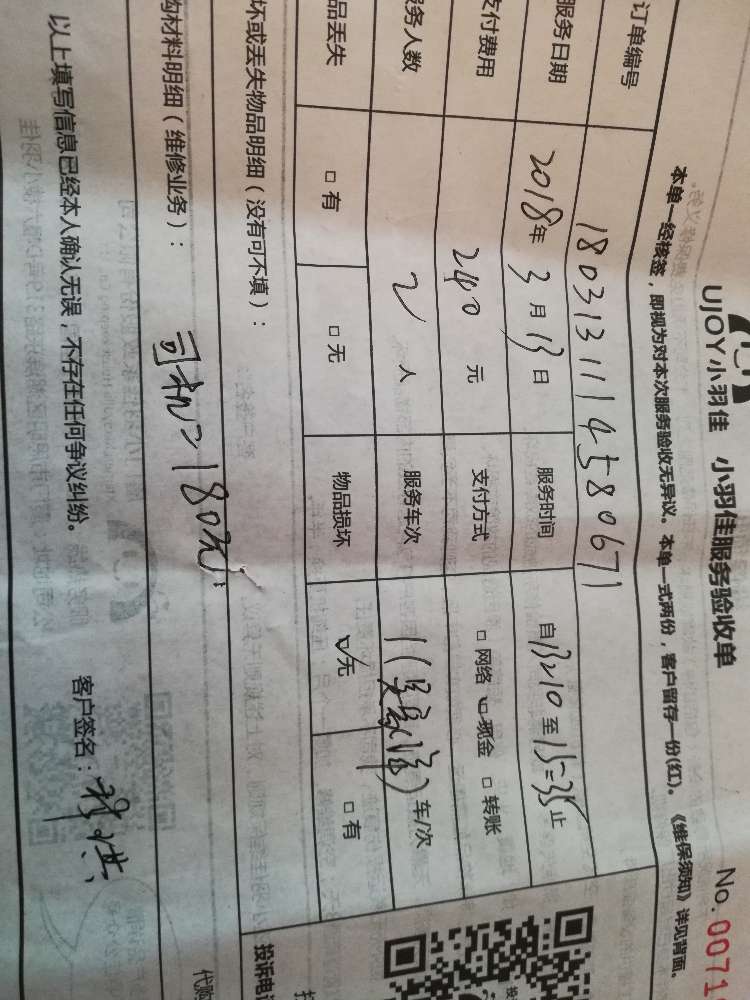 UJOY小羽佳 小羽佳服务验收单 No.0071
本单一经核签，即视为对本次服务验收无异议。本单一式两份，客户留存一份(红)。《维保须知》详见背面。
订单编号 1803131114580671
服务日期 2018年3月13日 服务时间 自13:10至15:35止
支付费用 240元 支付方式 □网络 ☑现金 □转账
服务人数 2人 服务车次 1( )车/次
品丢失 □有 □无 物品损坏 ☑无 □有
坏或丢失物品明细（没有可不填）：
购材料明细（维修业务）：
司机=180元
投诉电
代购
以上填写信息已经本人确认无误，不存在任何争议纠纷。 客户签名：